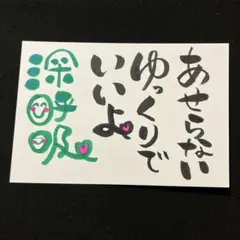 あせらない
ゆっくりで
いいよ
深呼吸